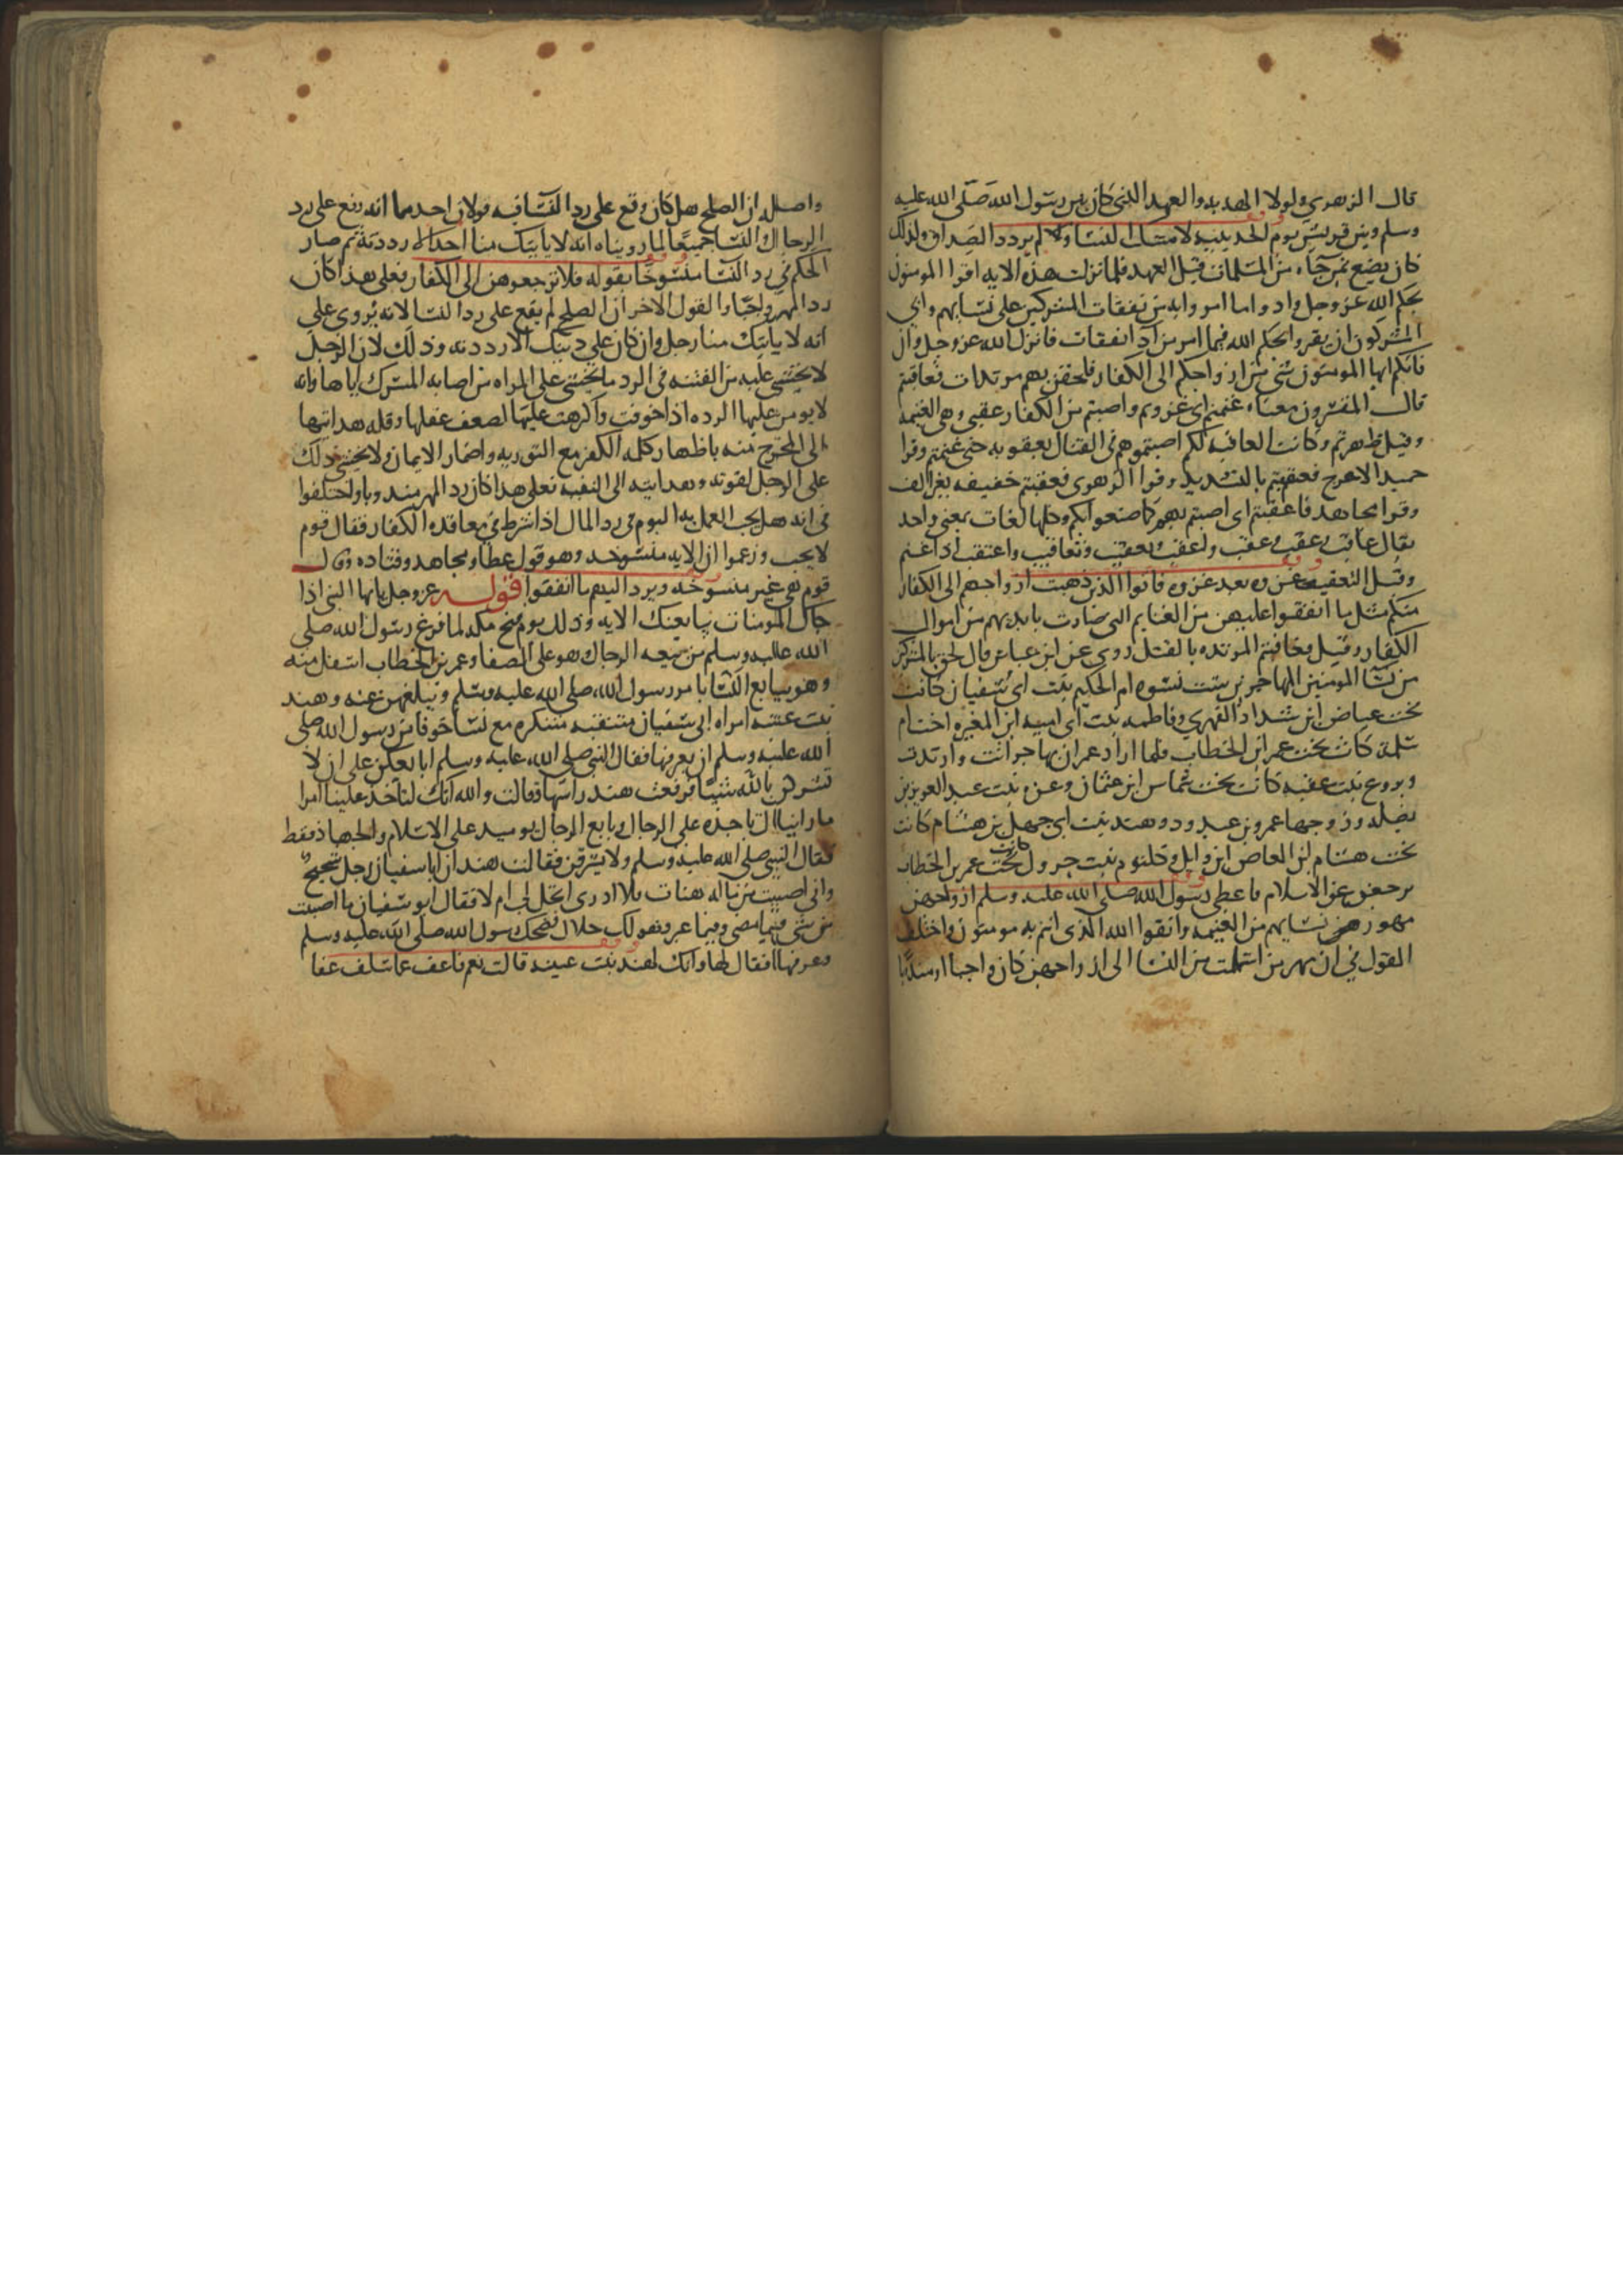 قال الزهري ولولا الهدنه والعهد الذي كان بين رسول الله صلى الله عليه
وسلم وبين قريش يوم الحديبيه لامسك النسا ولم يردد الصداق وكذلك
كان يصنع بمن جاه من المسلمات قبل العهد فلما نزلت هذه الايه اقر المومنون
بحكم الله عز وجل وادوا ما امروا به من نفقات المشركين على نسايهم وابي
المشركون ان يقروا بحكم الله فيما امر من آدا نفقات فانزل الله عز وجل وان
فاتكم ايها المومنون شي من ازواجكم الى الكفار فلحقن بهم مرتدات فعاقبتم
قال المفسرون معناه غنمتم اي غزوتم واصبتم من الكفار عقبى وهي الغنيمه
وقيل ظهرتم وكانت العاقبه لكم اصبتموهم في القتال بعقوبه حتى غنمتم وقرا
حميد الاعرج فعقبتم بالتشديد وقرا الزهري فعقبتم خفيفه بغير الف
وقرا مجاهد فاعقبتم اي اصبتم بهم كما صنعوا بكم وكلها لغات بمعنى واحد
يقال عاقب وعقب وعقب واعقب وتعقب وتعاقب واعتقب اذا غنم
وقيل التعقيب غزوه بعد غزوه فاتوا الذين ذهبت ازواجهم الى الكفار
منكم مثل ما انفقوا عليهن من الغنايم التي صارت بايديهم من اموال
الكفار وقيل فعاقبتم المرتده بالقتل روي عن ابن عباس قال لحق بالمشركين
من نسا المومنين المهاجرين ست نسوه ام الحكيم بنت ابي سفيان كانت
تحت عياض ابن شداد الفهري وفاطمه بنت ابي اميه ابن المغيره اخت ام
سلمه كانت تحت عمر ابن الخطاب فلما اراد عمر ان يهاجر ابت وارتدت
وبروع بنت عقبه كانت تحت شماس ابن عثمان وعزه بنت عبد العزيز بن
نضله وزوجها عمرو بن عبد ود وهند بنت ابي جهل بن هشام كانت
تحت هشام ابن العاص ابن وايل وكلثوم بنت جرول كانت تحت عمر بن الخطاب
رجعن عن الاسلام فاعطى رسول الله صلى الله عليه وسلم ازواجهن
مهور نسايهم من الغنيمه واتقوا الله الذي انتم به مومنون واختلف
القول في ان مهر من اسلمت من النسا الى ازواجهن كان واجبا او مندوبا
واصله ان الصلح هل كان وقع على رد النسا فيه قولان احدهما انه وقع على رد
الرجال والنسا جميعا لما رويناه انه لا ياتيك منا احد الا رددته ثم صار
الحكم في رد النسا منسوخا بقوله فلا ترجعوهن الى الكفار فعلى هذا كان
رد المهر واجبا والقول الاخر ان الصلح لم يقع على رد النسا لانه يروى على
انه لا ياتيك منا رجل وان كان على دينك الا رددته وذلك لان الرجل
لا يخشى عليه من الفتنه في الرد ما يخشى على المراه من اصابه المشرك اياها وانه
لا يومن عليها الرده اذا خوفت واكرهت عليها لضعف عقلها وقله هدايتها
الى المخرج منه باظهار كلمه الكفر مع التوريه واضمار الايمان ولا يخشى ذلك
على الرجل لقوته وهدايته الى التقيه فعلى هذا كان رد المهر مندوبا واختلفوا
في انه هل يجب العمل به اليوم في رد المال اذا شرط في معاقده الكفار فقال قوم
لا يجب وزعموا ان الايه منسوخه وهو قول عطا ومجاهد وقتاده وقال
قوم هي غير منسوخه ويرد اليهم ما انفقوا قوله عز وجل يا ايها النبي اذا
جاك المومنات يبايعنك الايه وذلك يوم فتح مكه لما فرغ رسول الله صلى
الله عليه وسلم من بيعه الرجال وهو على الصفا وعمر بن الخطاب اسفل منه
وهو يبايع النسا بامر رسول الله صلى الله عليه وسلم ويبلغهن عنه وهند
بنت عتبه امراه ابي سفيان متنقبه متنكره مع نسا خوفا من رسول الله صلى
الله عليه وسلم ان يعرفها فقال النبي صلى الله عليه وسلم ابايعكن على ان لا
تشركن بالله شييا فرفعت هند راسها وقالت والله انك لتاخذ علينا امرا
ما رايناك تاخذه على الرجال وبايع الرجال يوميد على الاسلام والجهاد فقط
فقال النبي صلى الله عليه وسلم ولا يسرقن فقالت هند ان ابا سفيان رجل شحيح
واني اصبت من ماله هنات فلا ادري ايحل لي ام لا فقال ابو سفيان ما اصبت
من شي فيما مضى وفيما غبر فهو لك حلال فضحك رسول الله صلى الله عليه وسلم
وعرفها فقال لها وانك لهند بنت عتبه قالت نعم فاعف عما سلف عفا